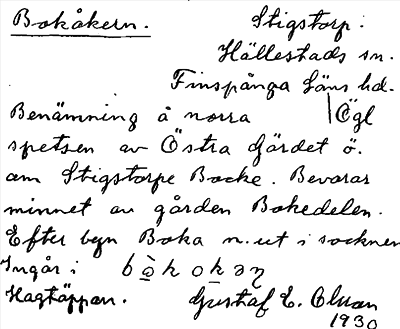 Bokåkern. Stigstorp.
Hällestads sn.
Finspånga läns hd.
Benämning å norra Ögl
spetsen av Östra Gärdet ö.
om Stigstorps Backe. Bevarar
minnet av gården Bokedelen.
Efter byn Boka n. ut i socknen
Ingår i
Hagtäppan. Gustaf E. Olsson
1930